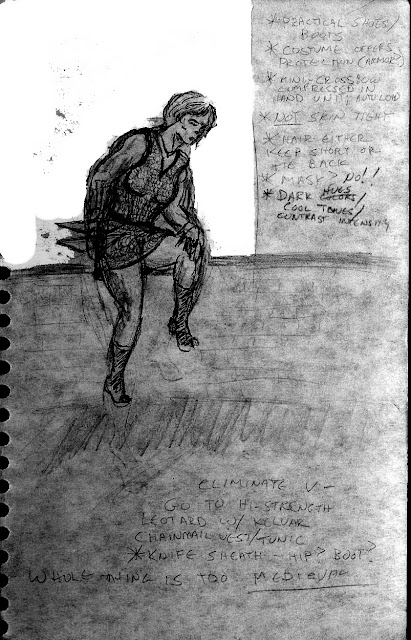 * PRACTICAL SHOES/
BOOTS
* COSTUME OFFERS
PROTECTION (ARMOR)
* MINI-CROSSBOW
COMPRESSED IN
HAND UNIT; AUTOLOAD
* NOT SKIN TIGHT
* HAIR EITHER
KEEP SHORT OR
TIE BACK
* MASK? NO!!
* DARK HUES
COLORS/
COOL TONES/
CONTRAST INTENSITY
ELIMINATE V-
GO TO HI-STRENGTH
LEOTARD W/ KELVAR
CHAINMAIL VEST/TUNIC
* KNIFE SHEATH - HIP? BOOT?
WHOLE THING IS TOO MEDIEVAL